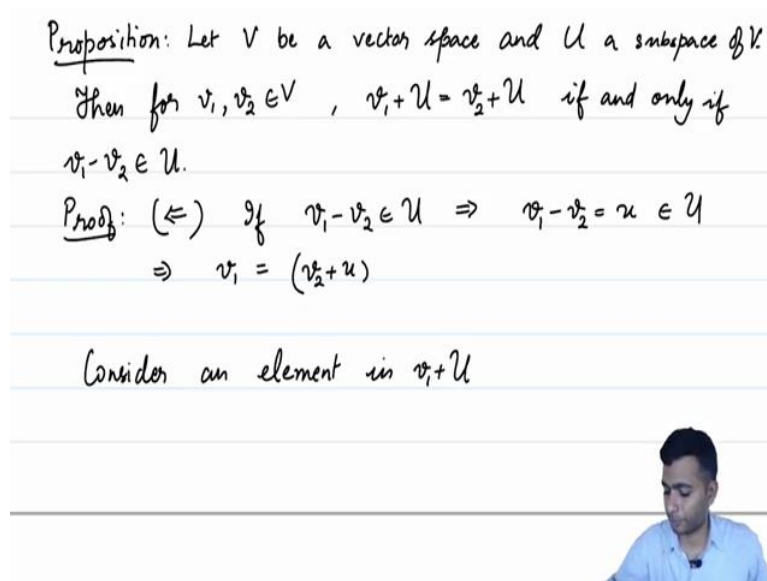 Proposition: Let V be a vector space and U a subspace of V.
Then for v₁, v₂ ∈ V , v₁ + U = v₂ + U if and only if
v₁ - v₂ ∈ U.
Proof: (⇐) If v₁ - v₂ ∈ U ⇒ v₁ - v₂ = u ∈ U
⇒ v₁ = (v₂ + u)
Consider an element in v₁ + U